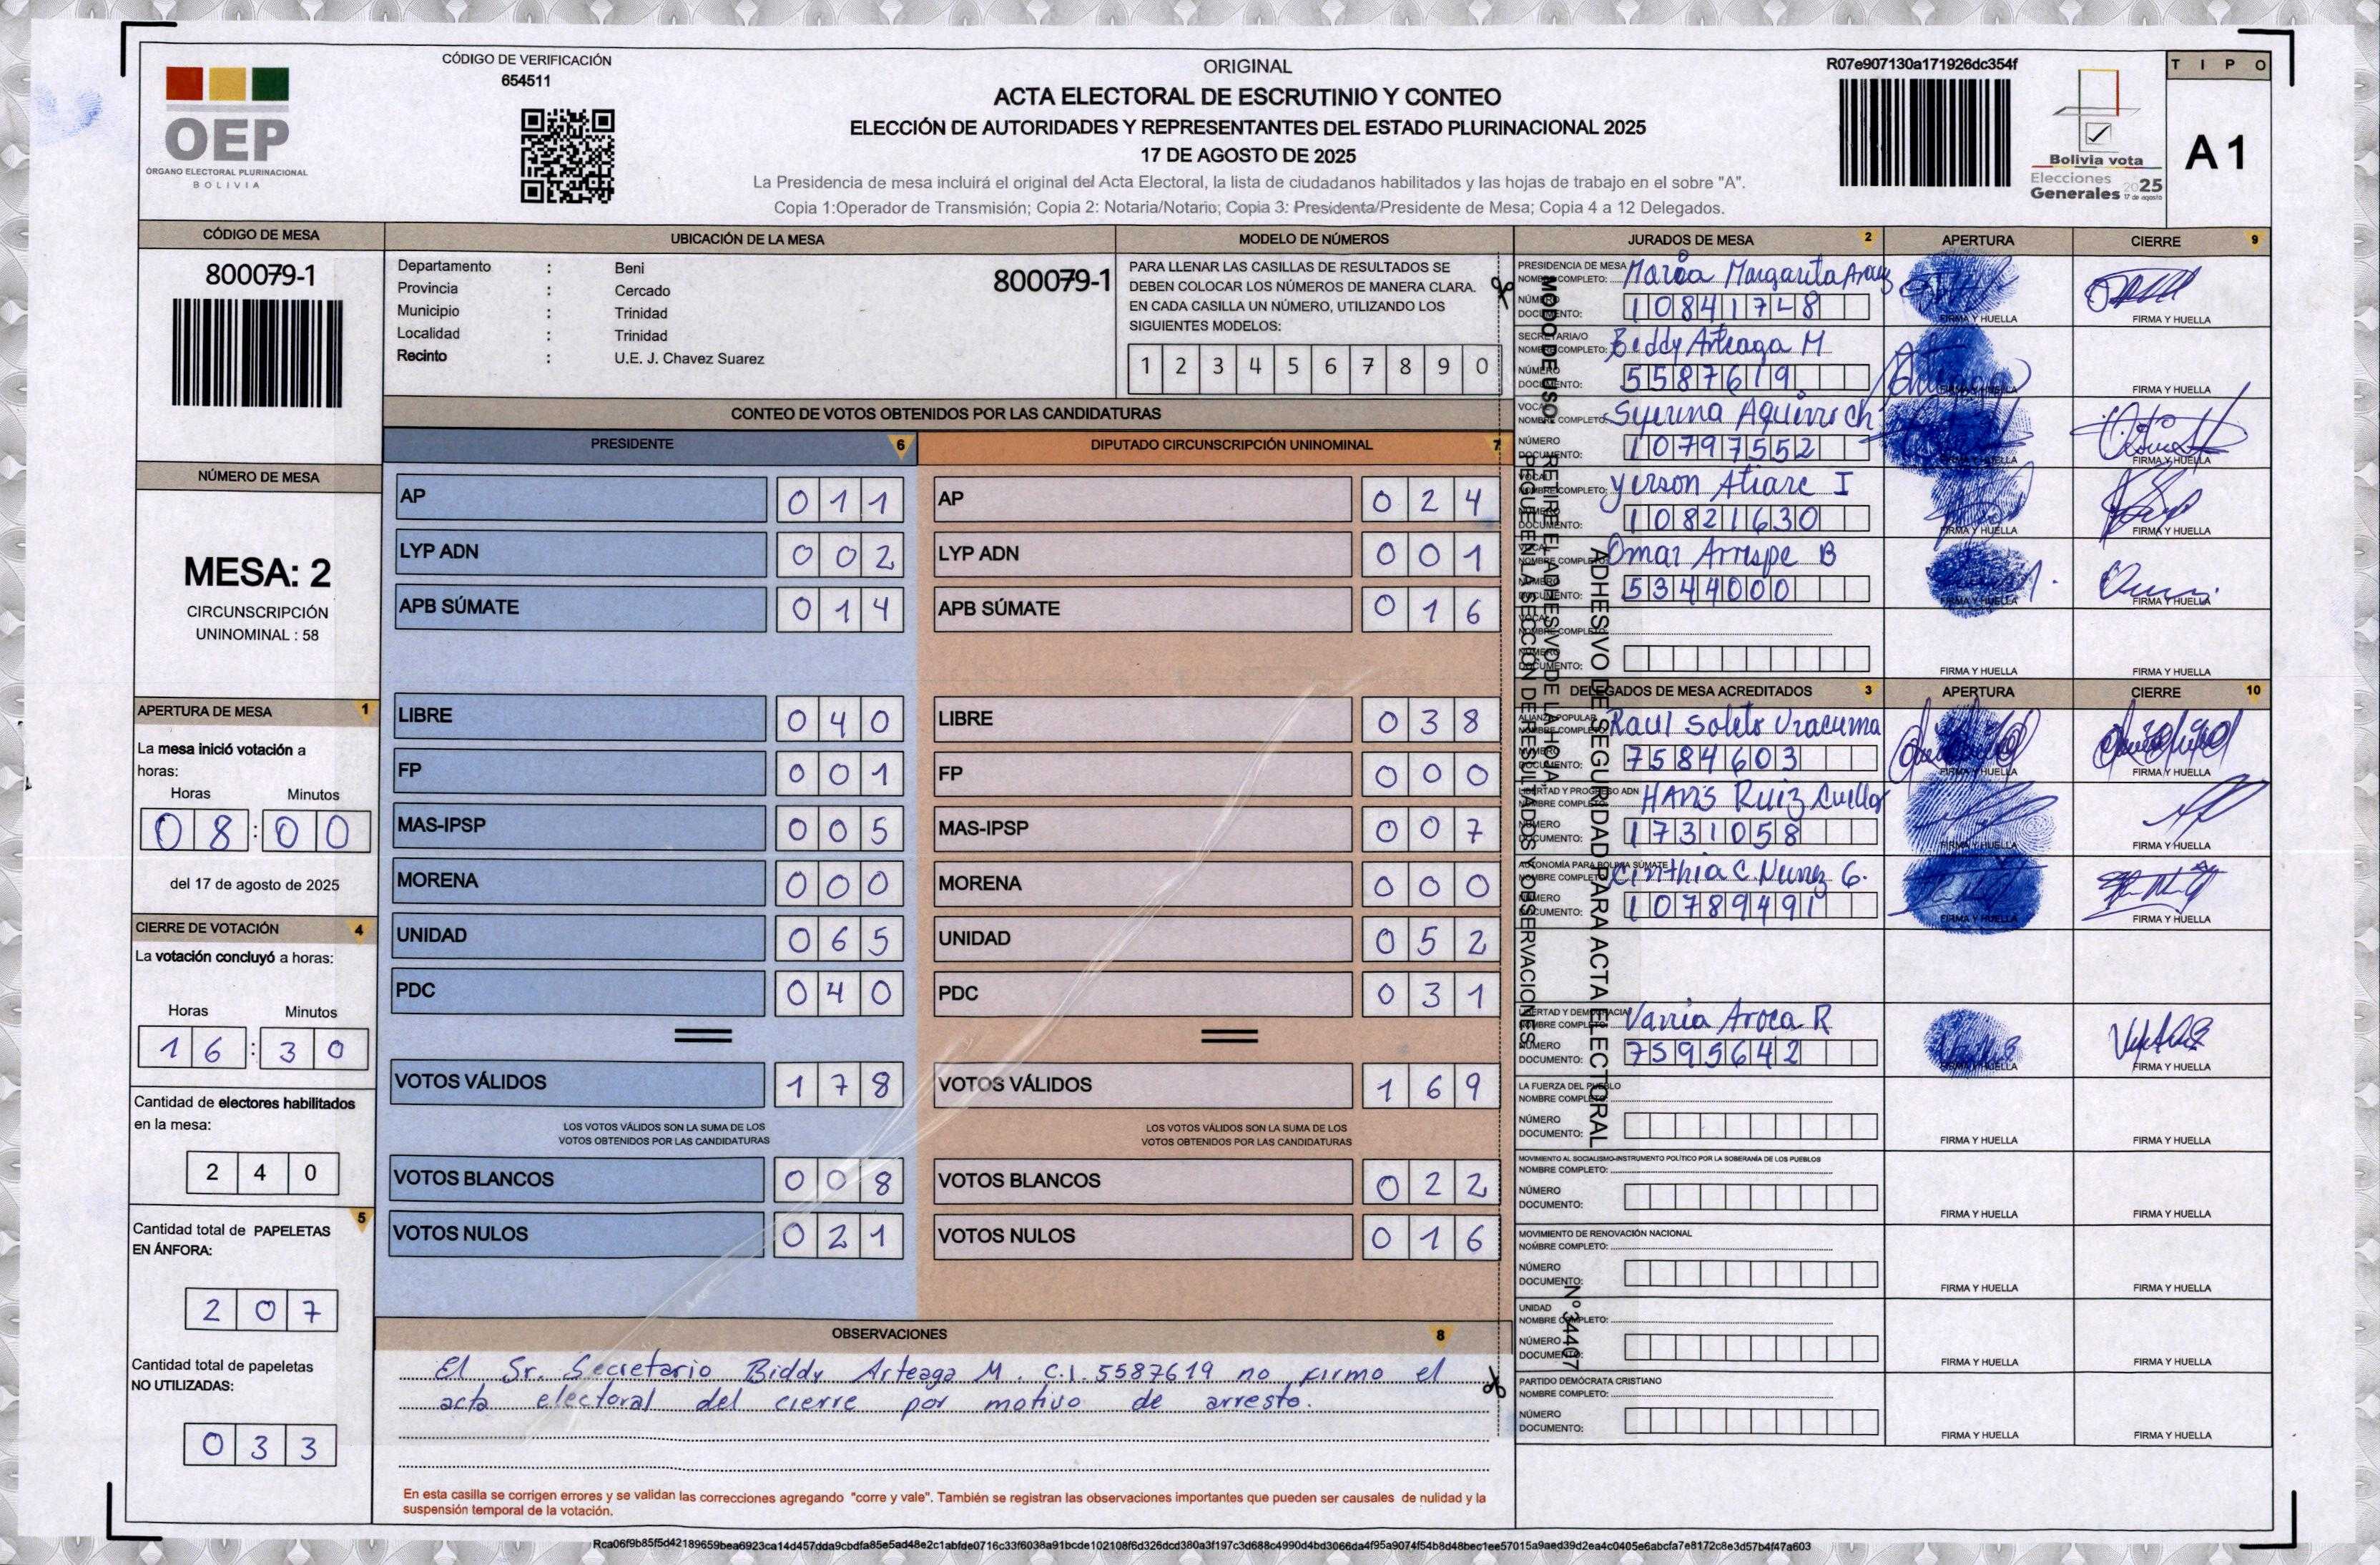 CÓDIGO DE VERIFICACIÓN
654511
OEP
ÓRGANO ELECTORAL PLURINACIONAL
BOLIVIA
ORIGINAL
ACTA ELECTORAL DE ESCRUTINIO Y CONTEO
ELECCIÓN DE AUTORIDADES Y REPRESENTANTES DEL ESTADO PLURINACIONAL 2025
17 DE AGOSTO DE 2025
La Presidencia de mesa incluirá el original del Acta Electoral, la lista de ciudadanos habilitados y las hojas de trabajo en el sobre "A".
Copia 1:Operador de Transmisión; Copia 2: Notaria/Notario; Copia 3: Presidenta/Presidente de Mesa; Copia 4 a 12 Delegados.
R07e907130a171926dc354f
Bolivia vota
Elecciones
Generales 2025
17 de agosto
TIPO
A 1
CÓDIGO DE MESA
800079-1
UBICACIÓN DE LA MESA
Departamento : Beni
Provincia : Cercado
Municipio : Trinidad
Localidad : Trinidad
Recinto : U.E. J. Chavez Suarez
800079-1
MODELO DE NÚMEROS
PARA LLENAR LAS CASILLAS DE RESULTADOS SE
DEBEN COLOCAR LOS NÚMEROS DE MANERA CLARA.
EN CADA CASILLA UN NÚMERO, UTILIZANDO LOS
SIGUIENTES MODELOS:
1 2 3 4 5 6 7 8 9 0
NÚMERO DE MESA
MESA: 2
CIRCUNSCRIPCIÓN
UNINOMINAL : 58
APERTURA DE MESA 1
La mesa inició votación a
horas:
Horas Minutos
08:00
del 17 de agosto de 2025
CIERRE DE VOTACIÓN 4
La votación concluyó a horas:
Horas Minutos
16:30
Cantidad de electores habilitados
en la mesa:
240
5
Cantidad total de PAPELETAS
EN ÁNFORA:
207
Cantidad total de papeletas
NO UTILIZADAS:
033
CONTEO DE VOTOS OBTENIDOS POR LAS CANDIDATURAS
PRESIDENTE 6
AP 011
LYP ADN 002
APB SÚMATE 014
LIBRE 040
FP 001
MAS-IPSP 005
MORENA 000
UNIDAD 065
PDC 040
VOTOS VÁLIDOS 178
LOS VOTOS VÁLIDOS SON LA SUMA DE LOS
VOTOS OBTENIDOS POR LAS CANDIDATURAS
VOTOS BLANCOS 008
VOTOS NULOS 021
DIPUTADO CIRCUNSCRIPCIÓN UNINOMINAL 7
AP 024
LYP ADN 001
APB SÚMATE 016
LIBRE 038
FP 000
MAS-IPSP 007
MORENA 000
UNIDAD 052
PDC 031
VOTOS VÁLIDOS 169
LOS VOTOS VÁLIDOS SON LA SUMA DE LOS
VOTOS OBTENIDOS POR LAS CANDIDATURAS
VOTOS BLANCOS 022
VOTOS NULOS 016
OBSERVACIONES 8
El Sr. Secretario Biddy Arteaga M. C.I. 5587619 no firmo el
acta electoral del cierre por motivo de arresto.
En esta casilla se corrigen errores y se validan las correcciones agregando "corre y vale". También se registran las observaciones importantes que pueden ser causales de nulidad y la
suspensión temporal de la votación.
MODO DE USO:
RETIRE EL ADHESIVO DE LA HOJA,
PEGUE EN LA SECCIÓN DE RESULTADOS Y OBSERVACIONES
ADHESIVO DE SEGURIDAD PARA ACTA ELECTORAL
Nº 34407
JURADOS DE MESA 2 APERTURA CIERRE 9
PRESIDENCIA DE MESA
NOMBRE COMPLETO: María Margarita Arauz
NÚMERO
DOCUMENTO: 10841748
FIRMA Y HUELLA FIRMA Y HUELLA
SECRETARIA/O
NOMBRE COMPLETO: Biddy Arteaga M
NÚMERO
DOCUMENTO: 5587619
FIRMA Y HUELLA FIRMA Y HUELLA
VOCAL
NOMBRE COMPLETO:
NÚMERO
DOCUMENTO: 10797552
FIRMA Y HUELLA FIRMA Y HUELLA
VOCAL
NOMBRE COMPLETO: Yerson Atiare I
NÚMERO
DOCUMENTO: 10821630
FIRMA Y HUELLA FIRMA Y HUELLA
VOCAL
NOMBRE COMPLETO: Omar Arrispe B
NÚMERO
DOCUMENTO: 5344000
FIRMA Y HUELLA FIRMA Y HUELLA
VOCAL
NOMBRE COMPLETO:
NÚMERO
DOCUMENTO:
FIRMA Y HUELLA FIRMA Y HUELLA
DELEGADOS DE MESA ACREDITADOS 3 APERTURA CIERRE 10
ALIANZA POPULAR
NOMBRE COMPLETO: Raul Soleto
NÚMERO
DOCUMENTO: 7584603
FIRMA Y HUELLA FIRMA Y HUELLA
LIBERTAD Y PROGRESO ADN
NOMBRE COMPLETO: Hans Ruiz Cuellar
NÚMERO
DOCUMENTO: 1731058
FIRMA Y HUELLA FIRMA Y HUELLA
AUTONOMÍA PARA BOLIVIA SÚMATE
NOMBRE COMPLETO: Cinthia C. Nuñez G.
NÚMERO
DOCUMENTO: 10789491
FIRMA Y HUELLA FIRMA Y HUELLA
LIBERTAD Y DEMOCRACIA
NOMBRE COMPLETO: Vania Aroca R
NÚMERO
DOCUMENTO: 7595642
FIRMA Y HUELLA FIRMA Y HUELLA
LA FUERZA DEL PUEBLO
NOMBRE COMPLETO:
NÚMERO
DOCUMENTO:
FIRMA Y HUELLA FIRMA Y HUELLA
MOVIMIENTO AL SOCIALISMO-INSTRUMENTO POLÍTICO POR LA SOBERANÍA DE LOS PUEBLOS
NOMBRE COMPLETO:
NÚMERO
DOCUMENTO:
FIRMA Y HUELLA FIRMA Y HUELLA
MOVIMIENTO DE RENOVACIÓN NACIONAL
NOMBRE COMPLETO:
NÚMERO
DOCUMENTO:
FIRMA Y HUELLA FIRMA Y HUELLA
UNIDAD
NOMBRE COMPLETO:
NÚMERO
DOCUMENTO:
FIRMA Y HUELLA FIRMA Y HUELLA
PARTIDO DEMÓCRATA CRISTIANO
NOMBRE COMPLETO:
NÚMERO
DOCUMENTO:
FIRMA Y HUELLA FIRMA Y HUELLA